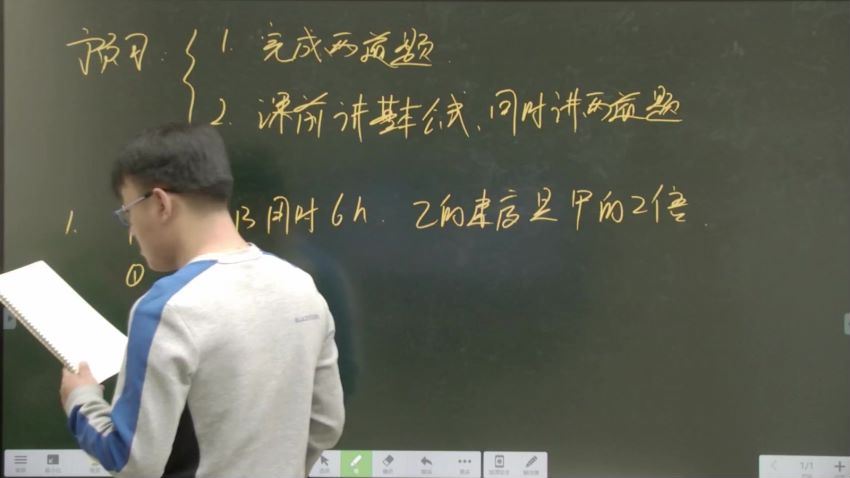 预习: 1. 完成两道题.
2. 课前讲基本公式、同时讲两道题
1. B同时6h. 乙的速度是甲的2倍.
①
1/1